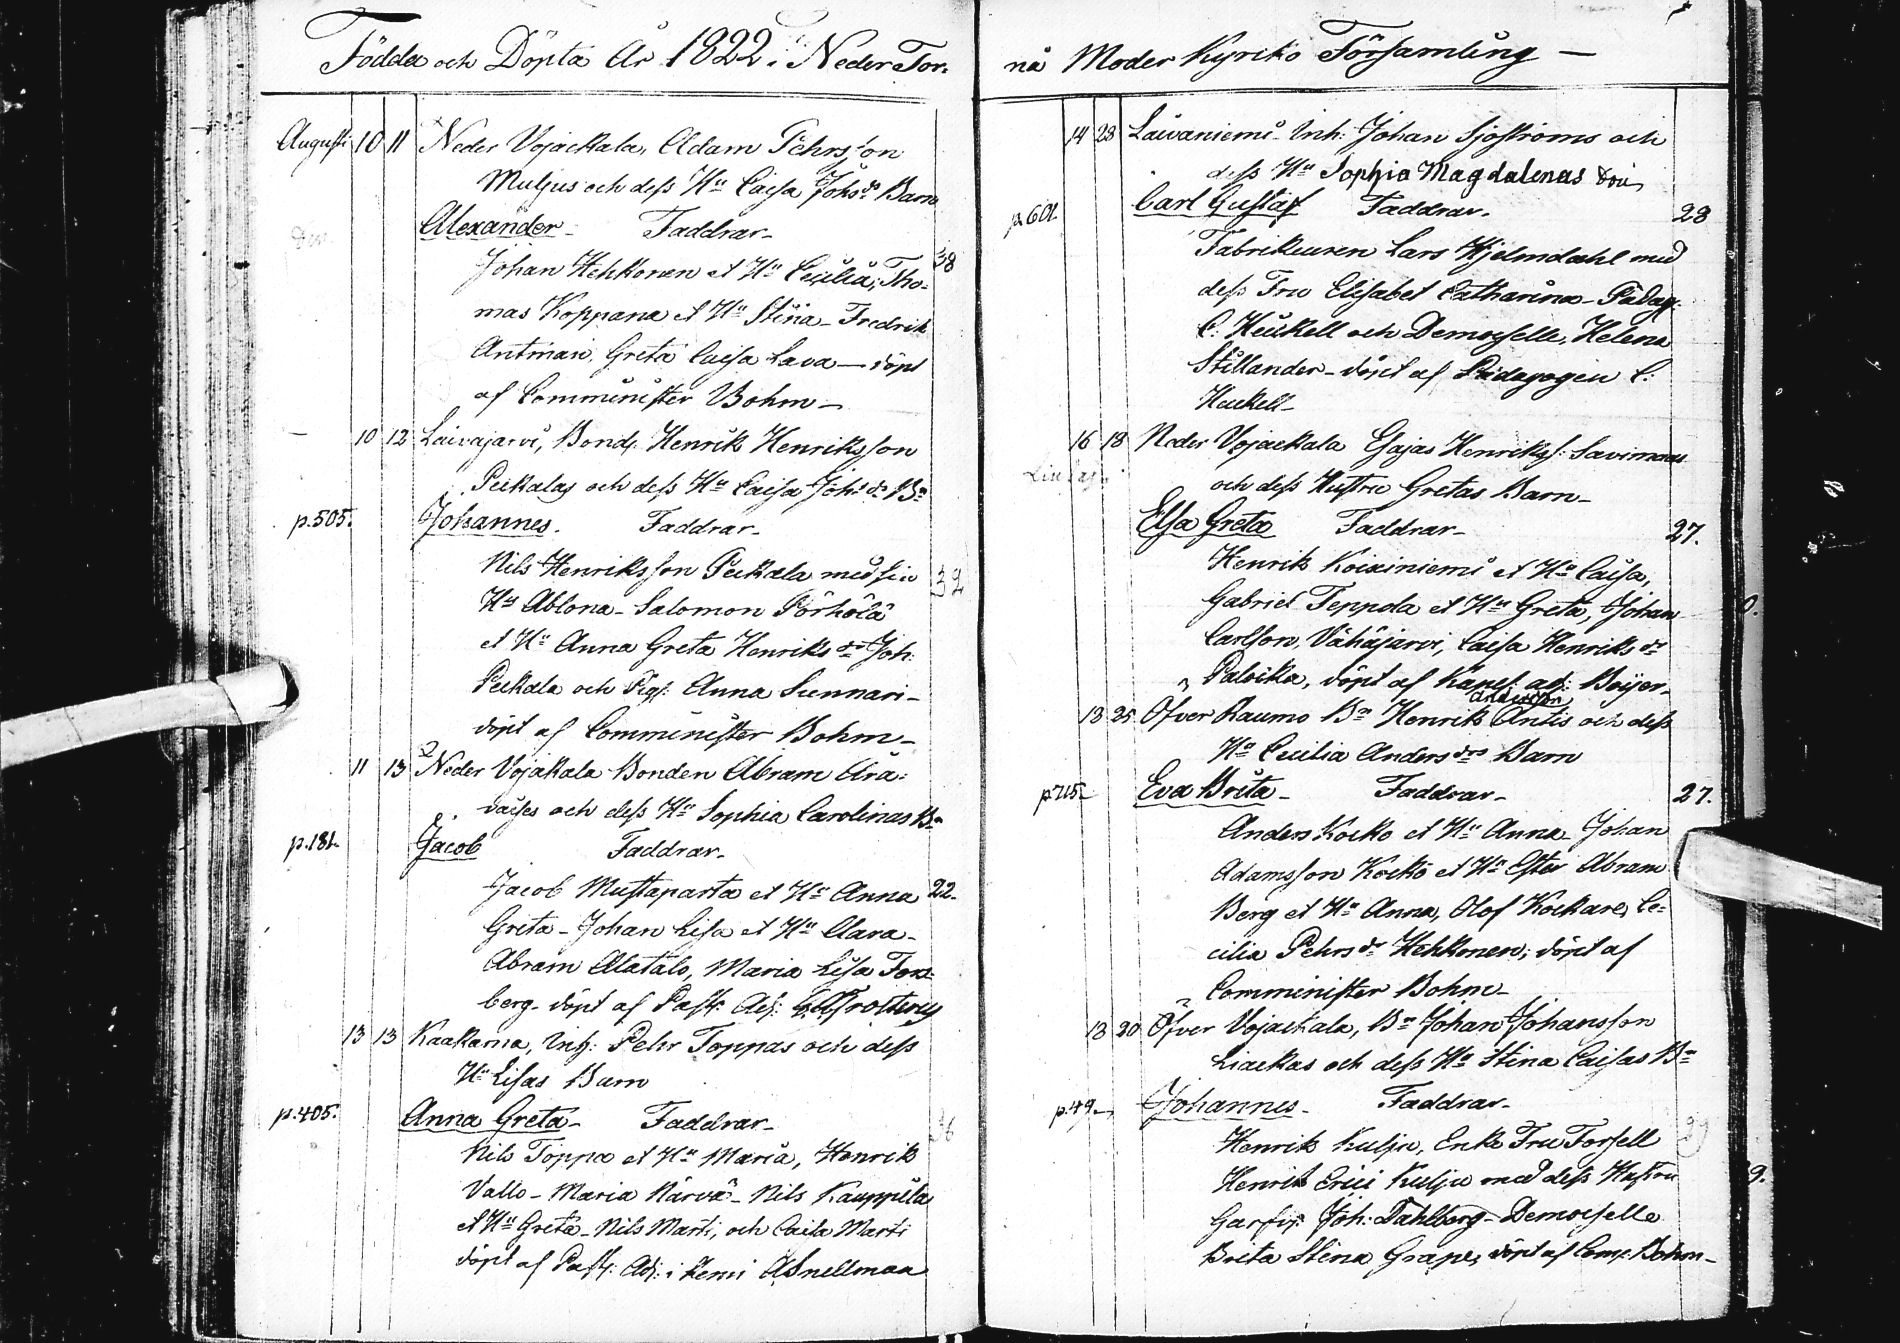 Födde och Döpta År 1822 i Neder Tor-
Augusti 10 11 Neder Vojackala, Adam Pehrsson
Muljus och dess Hu Caisa Johsdr Barn
Alexander Faddrar
38
Johan Hehkonen et Hu Cecilia, Tho-
mas Koppana et Hu Stina Fredrik
Antman, Greta Caisa Lava döpt
af Comminister Bohm
10 12 Laivajarvi, Bond. Henrik Henriksson
Peikalas och dess Hu Caisa Johsdr Bn
p.505. Johannes. Faddrar
Nils Henriksson Peikala med sin
32
Hu Ablona Salomon Pörhölä
et Hu Anna Greta Henriksdr Joh:
Peikala och Pig: Anna Sunnari
döpt af Comminister Bohm
11 13 Neder Vojakala Bonden Abram Ara-
vaises och dess Hu Sophia Carolinas Bn
p.181. Jacob Faddrar
Jacob Mustaparta et Hu Anna 22.
Greta Johan Lisa et Hu Clara
Abram Alatalo, Maria Lisa Fors-
berg döpt af Past: Adj:
13 13 Kaakama, Inh: Pehr Toppas och dess
Hu Lisas Barn
p.405. Anna Greta Faddrar
36
Nils Toppo et Hu Maria, Henrik
Vallo Maria Närvä Nils Kauppila
et Hu Greta Nils Marti, och Caisa Marti
döpt af Past: Adj: i Kemi A Snellman
nå Moder Kyrko Församling
14 28 Laivaniemi Inh: Johan Sjöströms och
dess Hu Sophia Magdalenas
p.601. Carl Gustaf Faddrar. 28
Fabrikeuren Lars Hjelmdahl med
dess Fru Elisabet Catharina Pädag:
C: Heickell och Demoiselle Helena
Stillander döpt af Pädagogen C:
Heickell
16 18 Neder Vojackala Esajas Henrikss:
och dess Hustru Gretas Barn
Elsa Greta Faddrar 27.
Henrik Koivuniemi et Hu Caisa,
Gabriel Teppola et Hu Greta, Johan
Carlsson, Vähäjarvi, Caisa Henriksdr
Paloika, döpt af Kapel. adj: Boijer
Andersson
18 25 Öfver Raumo Bn Henrik Antis och dess
Hu Cecilia Andersdrs Barn
p.715 Eva Brita Faddrar 27.
Anders Kocko et Hu Anna Johan
Adamsson Kocko et Hu Ester Abram
Berg et Hu Anna, Olof Kockare, Ce-
cilia Pehrsdr Hehkonen; döpt af
Comminister Bohm
18 20 Öfver Vojackala, Bn Johan Johansson
Liackas och dess Hu Stina Caisas Bn
p.49 Johannes Faddrar
Henrik Kulju, Enke Fru Forsell
Henrik Erici Kulju med dess Hustru
Garfv: Joh: Dahlberg Demoiselle
Brita Stina Grape, döpt af Com: Bohm